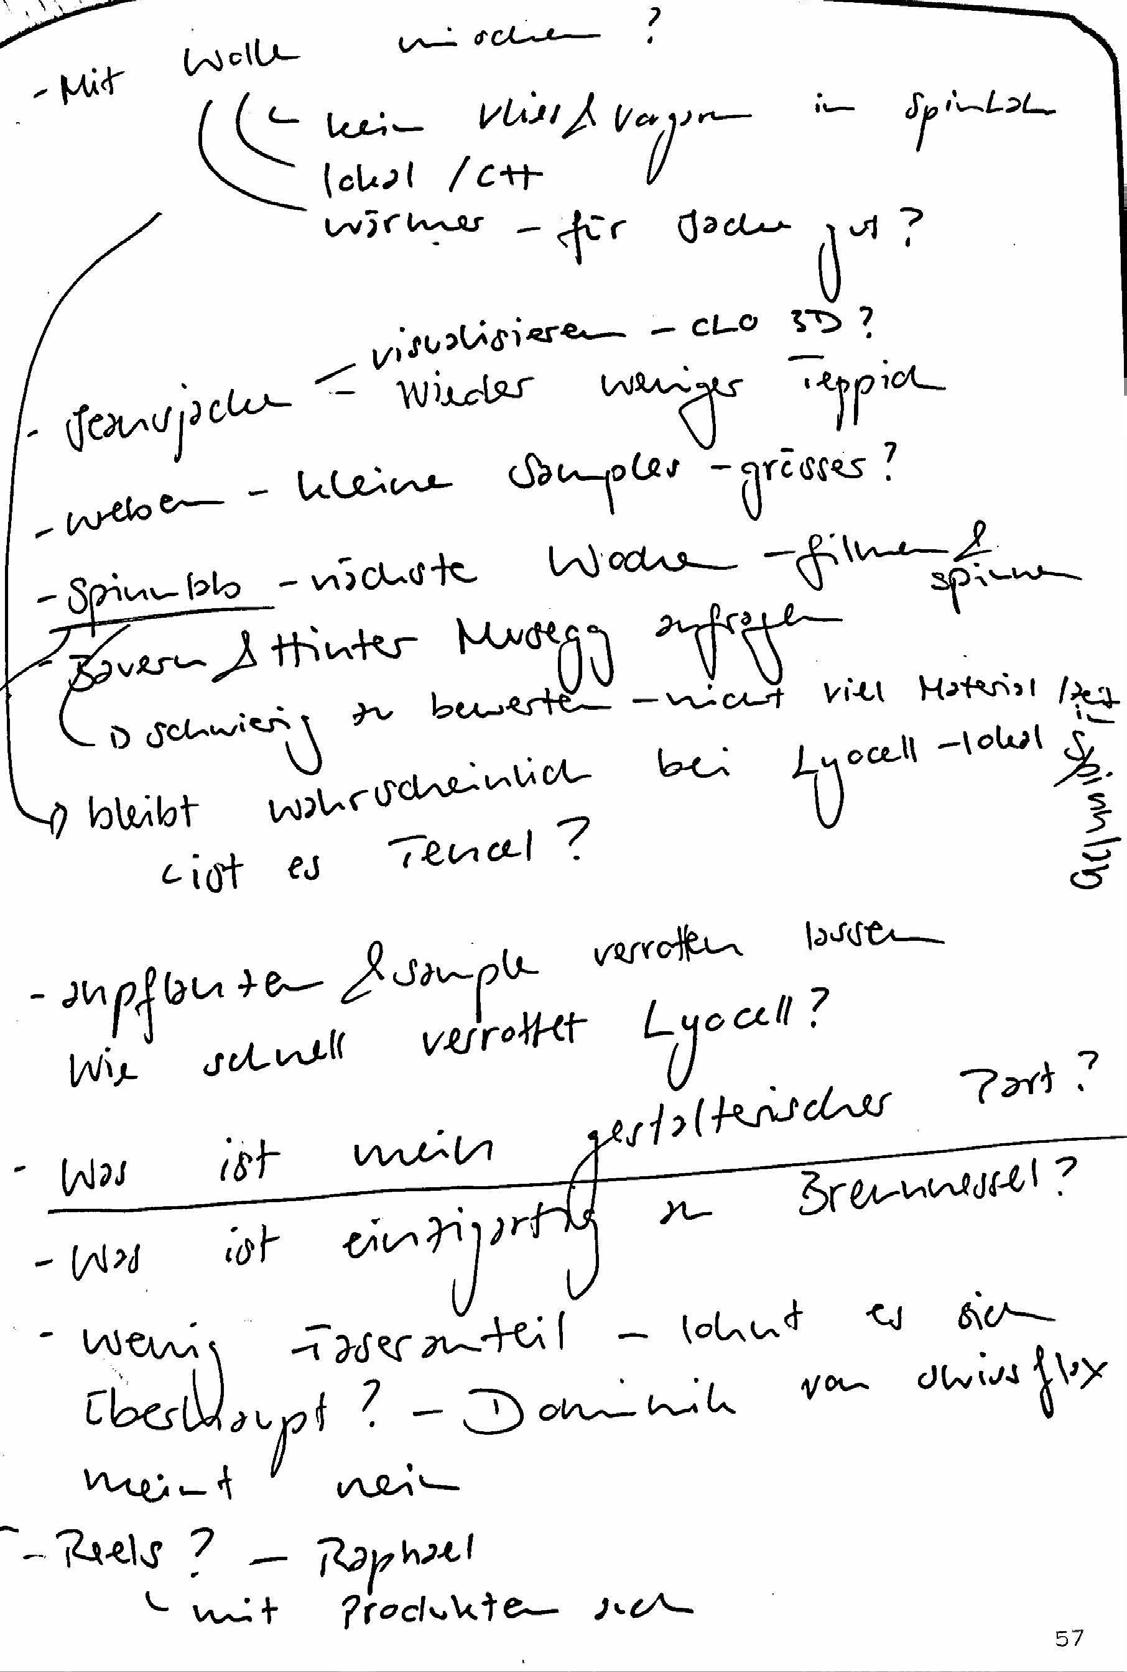 - Mit Wolle mischen?
kein Vlies & Vorgarn in Spinnlab
lokal / CH
wärmer - für Jacke gut?
visualisieren - CLO 3D?
- Jeansjacke - Wieder weniger Teppich
- weben - kleine Samples - grösser?
- Spinnlab - nächste Woche - filmen &
spinnen
- Bauern & Hinter Musegg anfragen
schwierig zu bewerten - nicht viel Material / Zeit
bleibt wahrscheinlich bei Lyocell - lokal
ist es Tencel?
- anpflanzen & Sample verrotten lassen
Wie schnell verrottet Lyocell?
- Was ist mein gestalterischer Part?
- Was ist einzigartig an Brennnessel?
- wenig Faseranteil - lohnt es sich
überhaupt? - Dominik von swissflax
meint nein
- Reels? - Raphael
mit Produkten auch
57